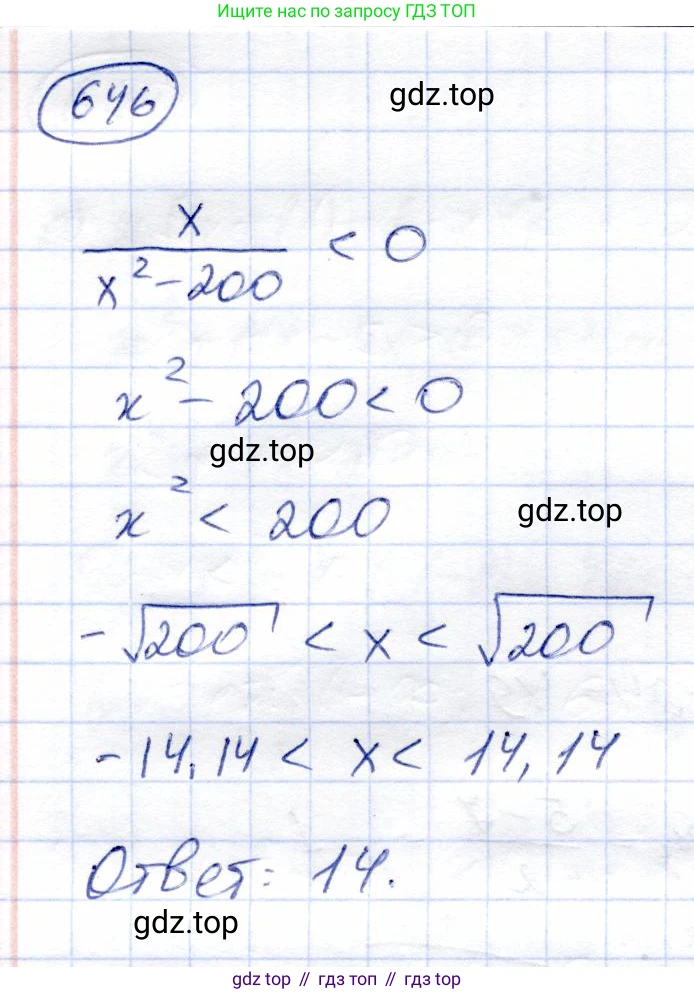 Ищите нас по запросу ГДЗ ТОП
646
gdz.top
x / x² - 200 < 0
x² - 200 < 0
gdz.top
x² < 200
gdz.top
-√200 < x < √200
-14,14 < x < 14,14
Ответ: 14.
gdz.top
gdz top // гдз топ // gdz.top